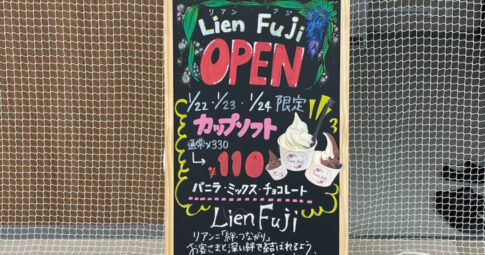 リアン フジ
Lien Fuji
OPEN
1/22・1/23・1/24 限定
カップソフト
通常¥330
↳ ¥110
バニラ・ミックス・チョコレート
Lien Fuji
リアン=「絆・つながり」
お客さまと深い絆で結ばれるよう